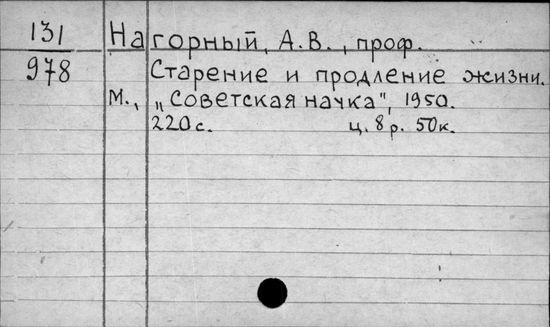 131
978
Нагорный, А.В., проф.
Старение и продление жизни.
М., „Советская наука", 1950.
220 с. ц. 8 р. 50 к.